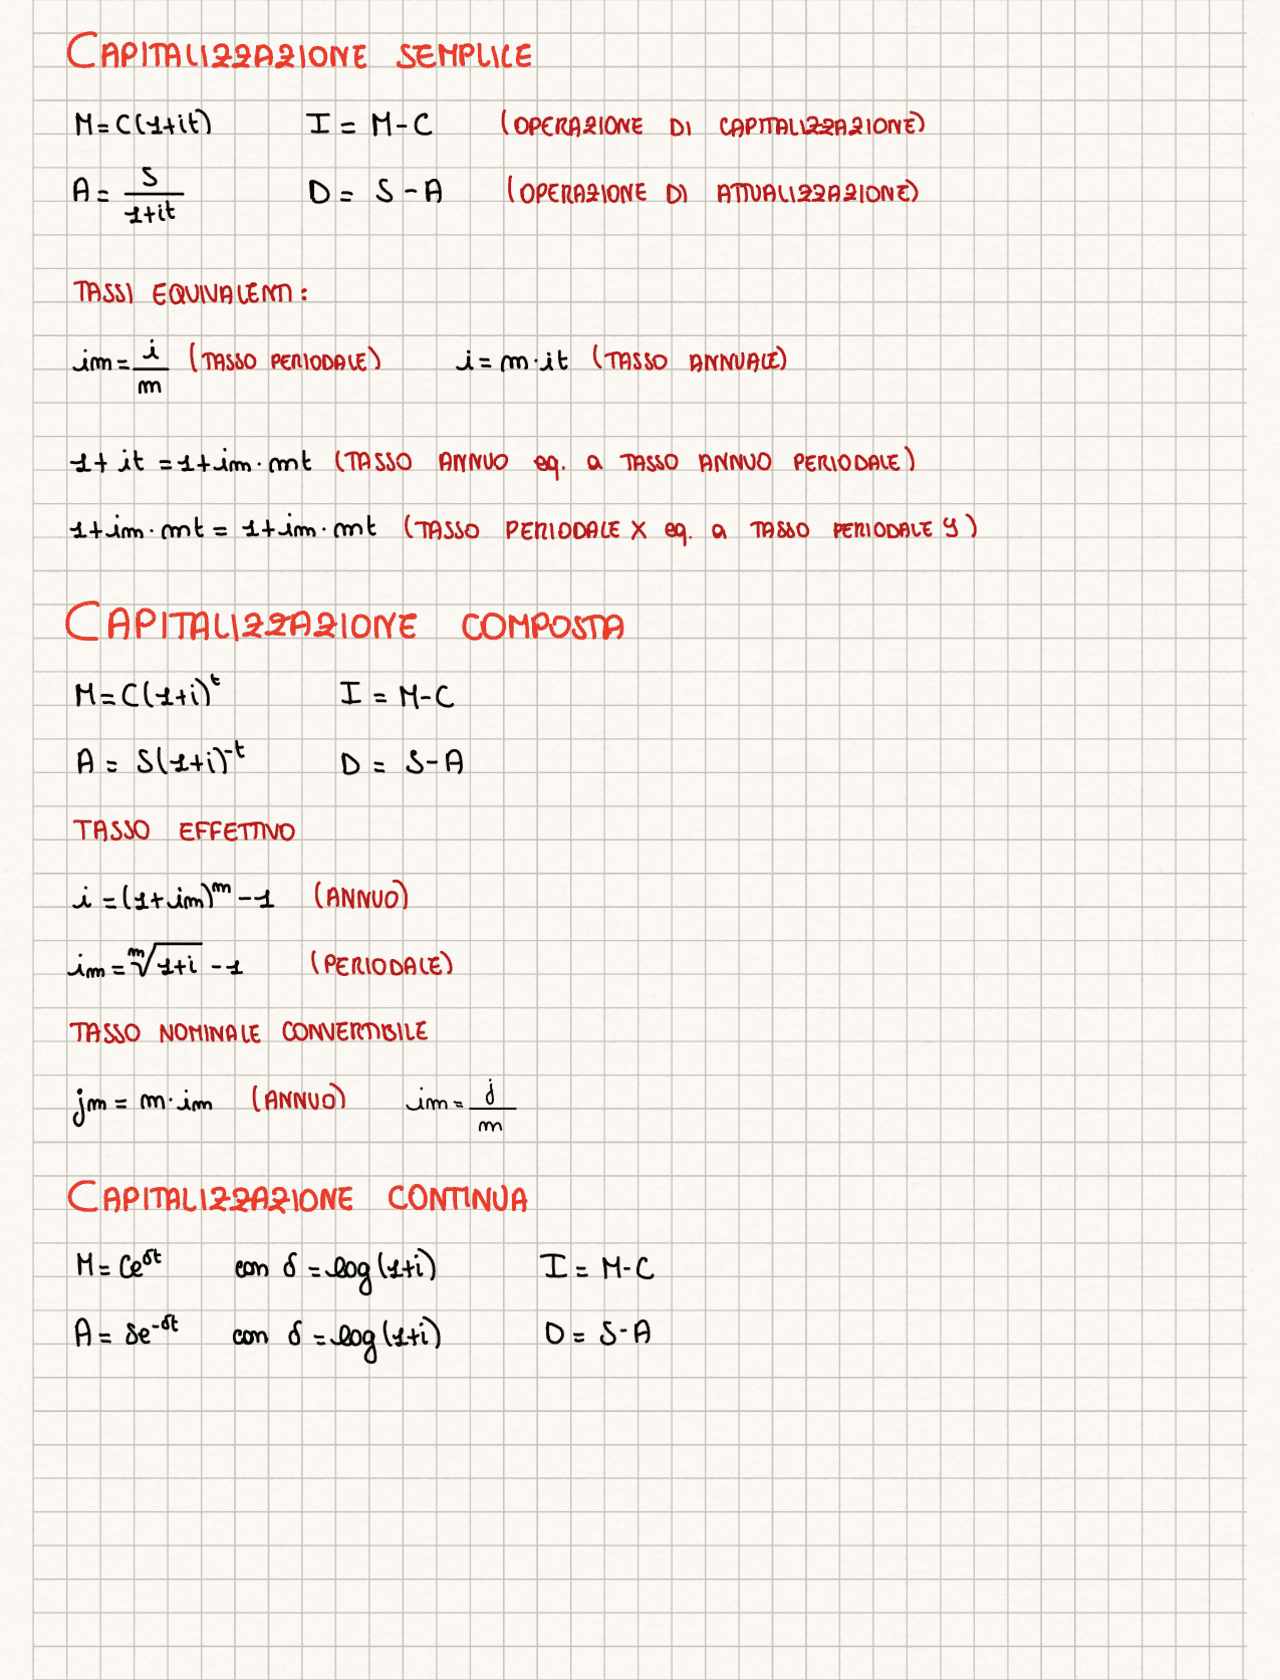 CAPITALIZZAZIONE SEMPLICE
M=C(1+it) I = M-C (OPERAZIONE DI CAPITALIZZAZIONE)
A= S/1+it D = S-A (OPERAZIONE DI ATTUALIZZAZIONE)
TASSI EQUIVALENTI:
im= i/m (TASSO PERIODALE) i=m·it (TASSO ANNUALE)
1+it = 1+im·mt (TASSO ANNUO eq. a TASSO ANNUO PERIODALE)
1+im·mt = 1+im·mt (TASSO PERIODALE X eq. a TASSO PERIODALE y)
CAPITALIZZAZIONE COMPOSTA
M=C(1+i)^t I = M-C
A = S(1+i)^-t D = S-A
TASSO EFFETTIVO
i = (1+im)^m -1 (ANNUO)
im = ^m√1+i -1 (PERIODALE)
TASSO NOMINALE CONVERTIBILE
jm = m·im (ANNUO) im = j/m
CAPITALIZZAZIONE CONTINUA
M = Ce^δt con δ = log(1+i) I = M-C
A = Se^-δt con δ = log(1+i) D = S-A